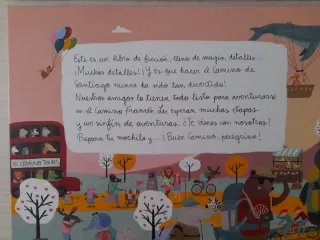 Este es un libro de ficción, lleno de magia, detalles...
¡Muchos detalles! ¡Y es que hacer el Camino de
Santiago nunca ha sido tan divertido!
Nuestros amigos lo tienen todo listo para aventurarse
en el Camino Francés. Les esperan muchas etapas
y un sinfín de aventuras. ¿Te vienes con nosotros?
Prepara tu mochila y... ¡Buen Camino, peregrino!
CAMINO TOURS